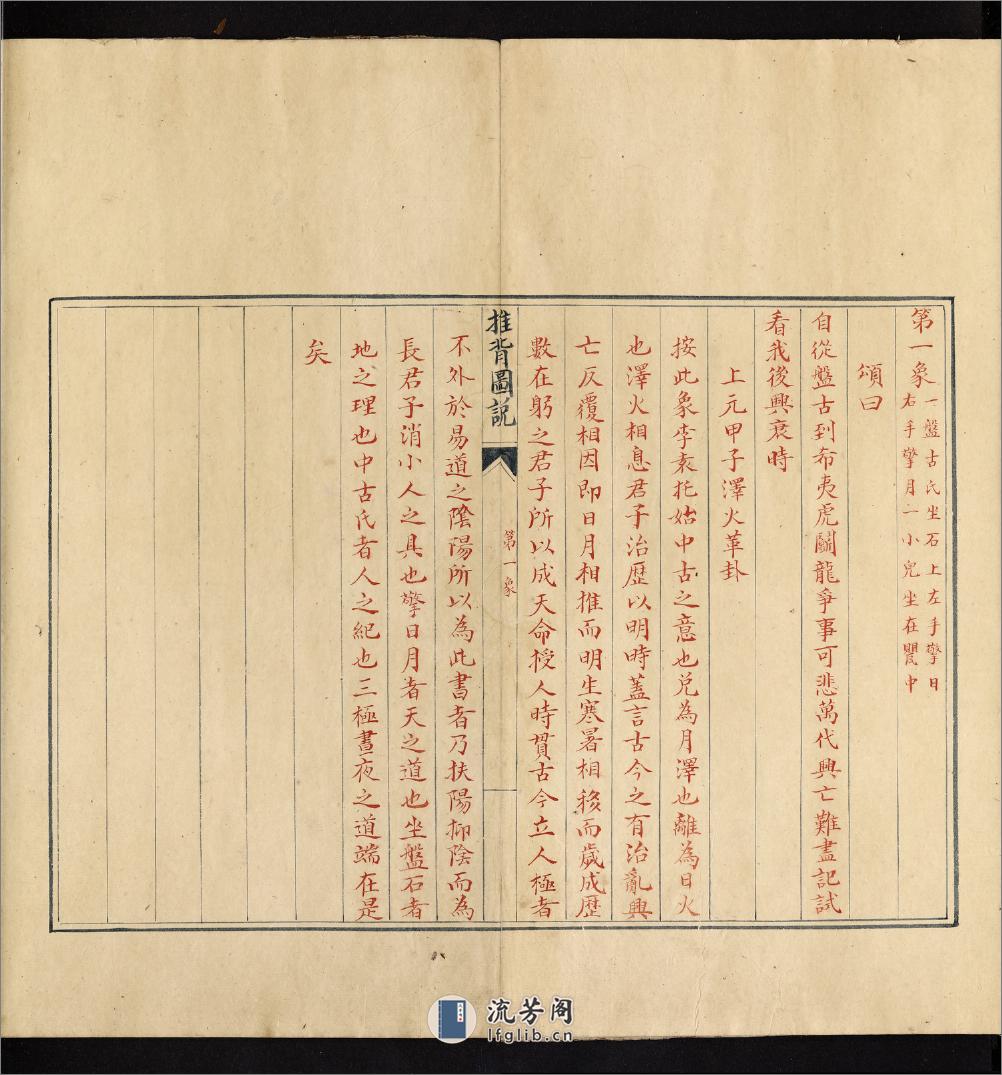 第一象
一盤古氏坐石上左手擎日
右手擎月一小兒坐在甖中
頌曰
自從盤古到布夷虎鬭龍爭事可悲萬代興亡難盡記試
看我後興衰時
上元甲子澤火革卦
按此象李袁托始中古之意也兌為月澤也離為日火
也澤火相息君子治歷以明時蓋言古今之有治亂興
亡反覆相因即日月相推而明生寒暑相移而歲成歷
數在躬之君子所以成天命授人時貫古今立人極者
推背圖説
第一象
不外於易道之陰陽所以為此書者乃扶陽抑陰而為
長君子消小人之具也擎日月者天之道也坐盤石者
地之理也中古氏者人之紀也三極晝夜之道端在是
矣
流芳阁
lfglib.cn